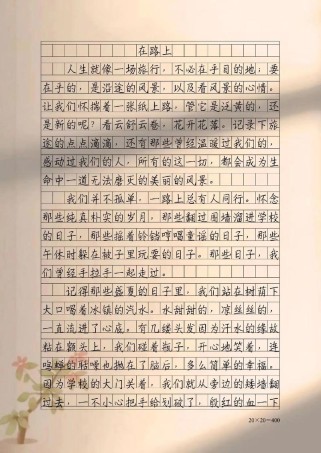 在路上
人生就像一场旅行，不必在乎目的地；要
在乎的，是沿途的风景，以及看风景的心情。
让我们怀揣着一张纸上路，管它是泛黄的，还
是新的呢？看云舒云卷，花开花落。记录下旅
途的点点滴滴，还有那些曾经温暖过我们的，
感动过我们的人，所有的这一切，都会成为生
命中一道无法磨灭的美丽的风景。
我们并不孤单，一路上总有人同行。怀念
那些纯真朴实的岁月，那些翻过围墙溜进学校
的日子，那些摇着铃铛哼唱童谣的日子，那些
午休时躲在被子里玩耍的日子。那些日子，我
们曾经手拉手一起走过。
记得那些盛夏的日子里，我们站在树荫下
大口喝着冰镇的汽水。水甜甜的，凉丝丝的，
一直流进了心底。有几缕头发因为汗水的缘故
粘在额头上，我们碰着瓶子，开心地笑着，连
喧蝉的聒噪也抛在了脑后，多么简单的幸福。
因为学校的大门关着，我们就从旁边的矮墙翻
过去，一不小心把手给划破了，殷红的血一下
20×20=400